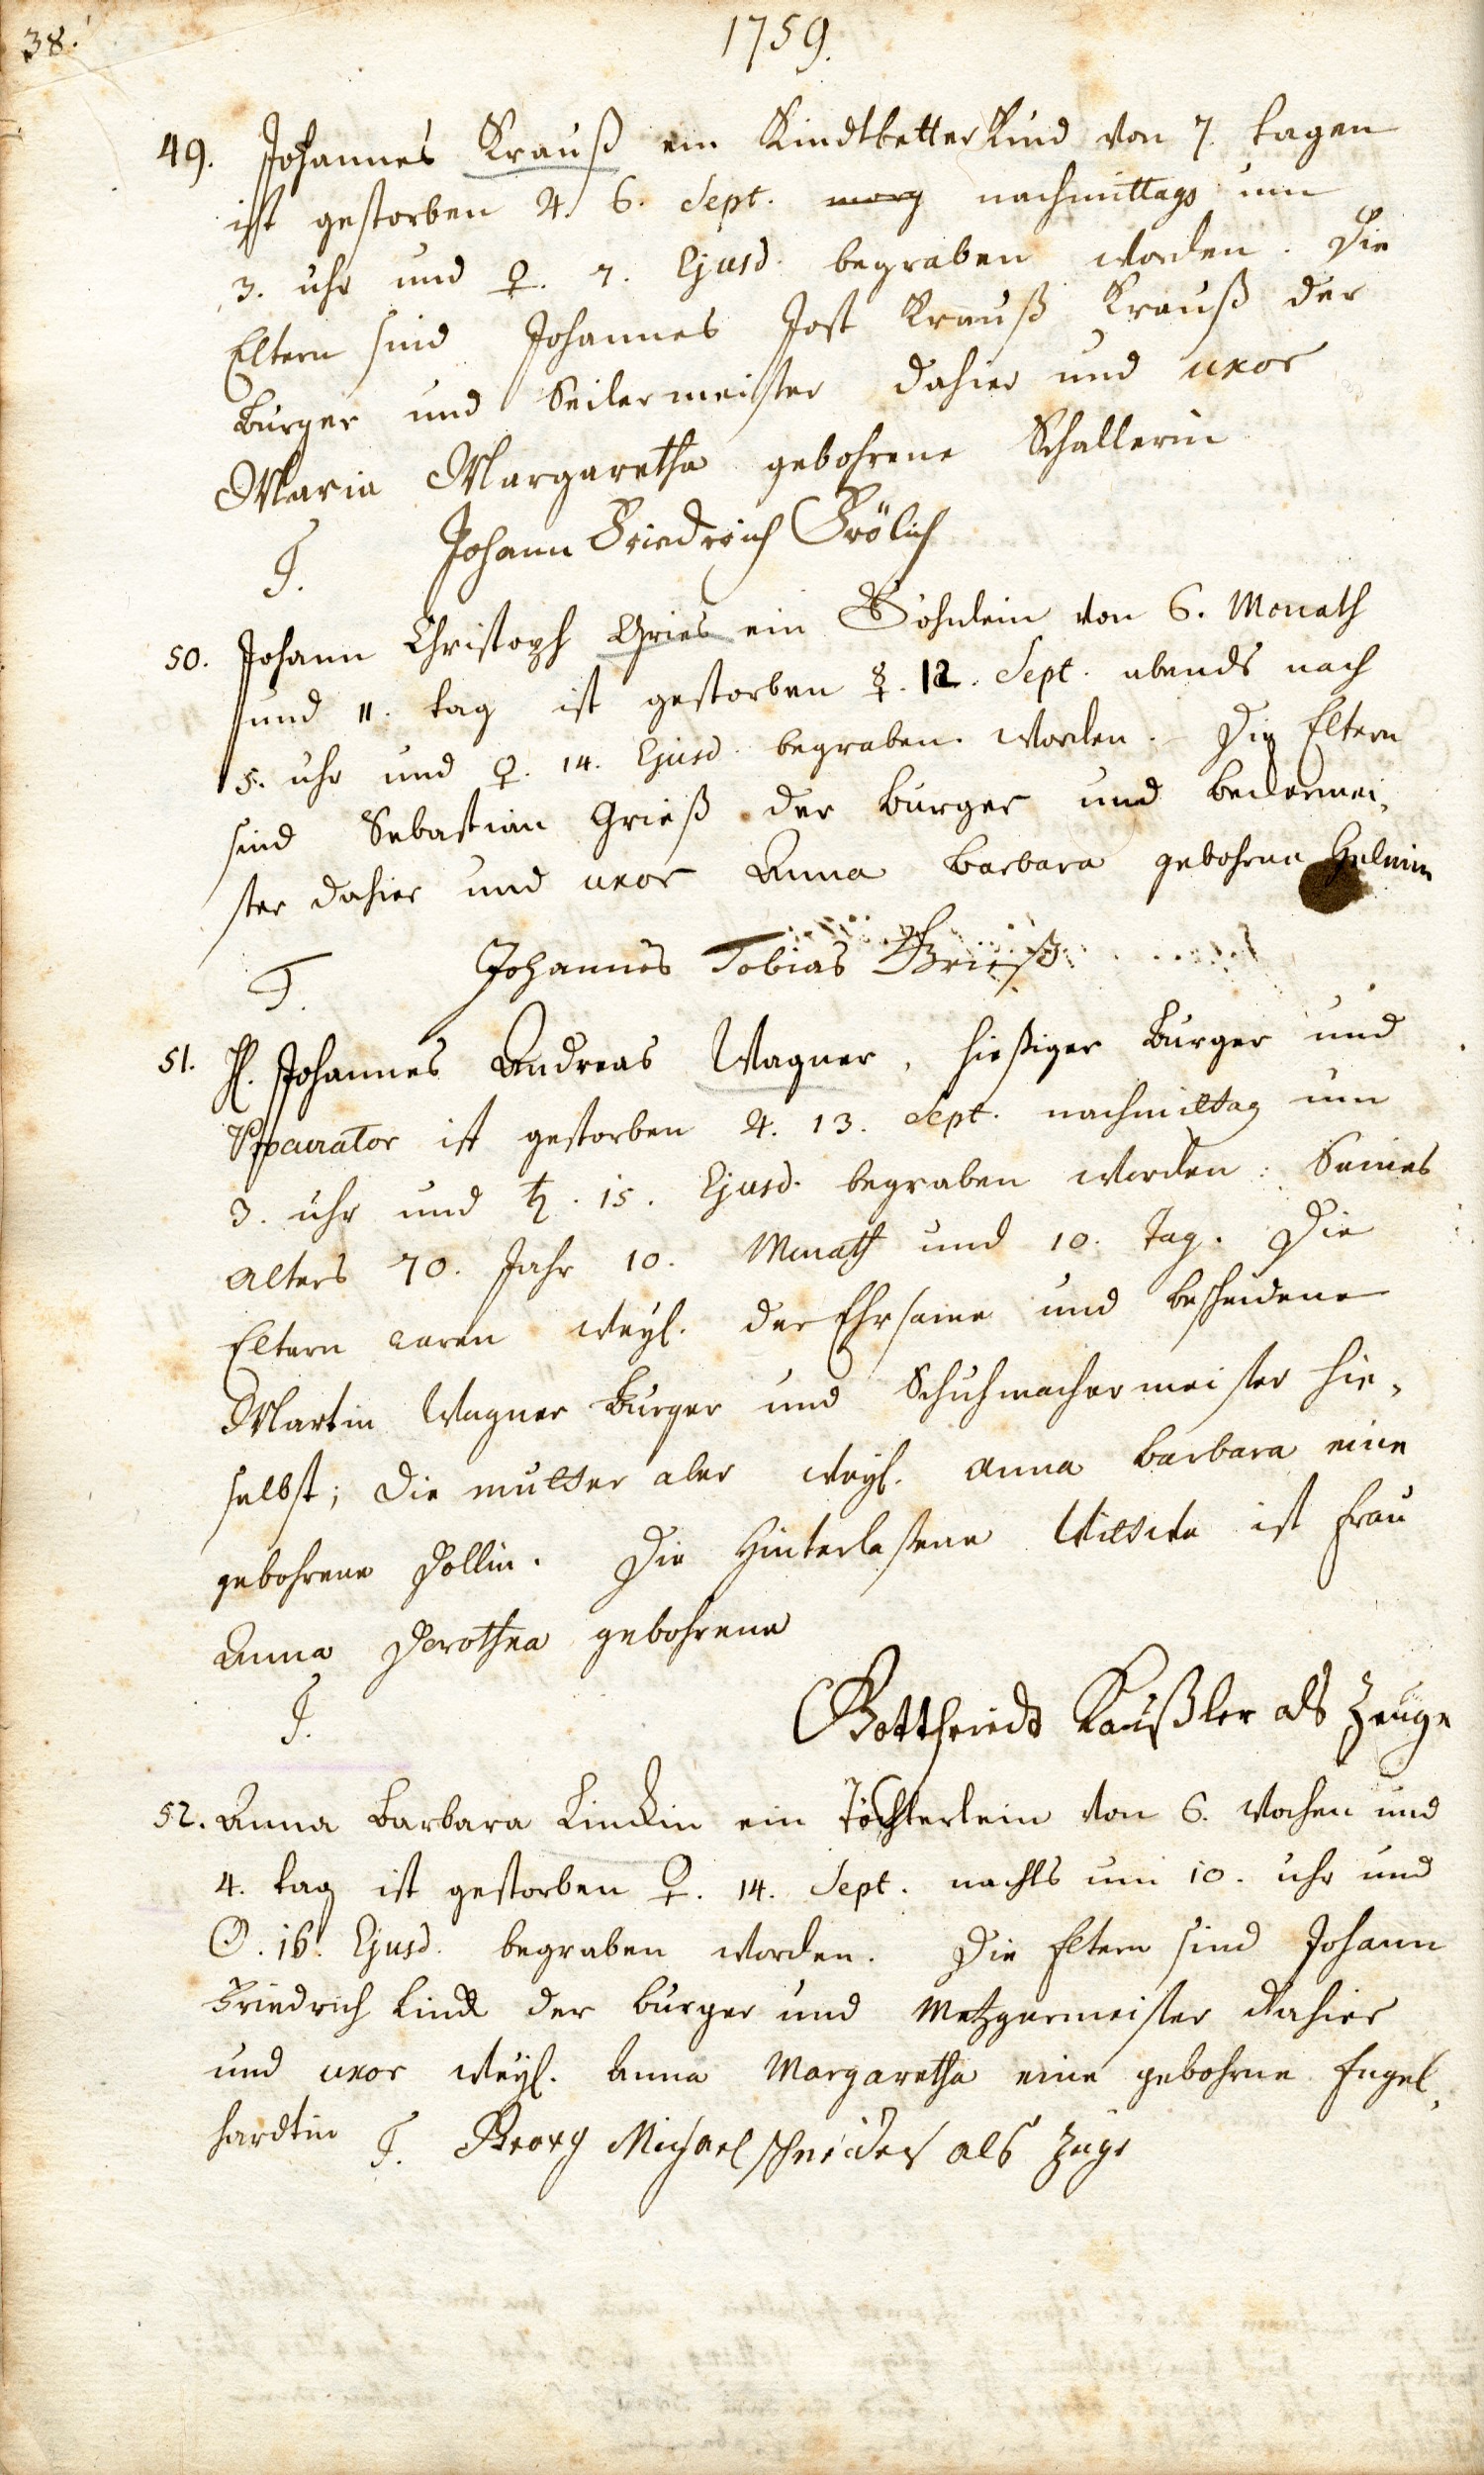 38.
1759.
49. Johannes Krauß ein Kindtbetterkind von 7. tagen
ist gestorben ♃. 6. Sept. morg nachmittags um
3. uhr und ♀. 7. Ejusd. begraben worden. Die
Eltern sind Johannes Jost Krauß Krauß der
Burger und Seilermeister dahier und uxor
Maria Margaretha gebohrene Schallerin
T. Johann Friedrich Frölich
50. Johann Christoph Gries ein Söhnlein von 6. Monath
und 11. tag ist gestorben ☿. 12. Sept. abends nach
5. uhr und ♀. 14. Ejusd. begraben worden. Die Eltern
sind Sebastian Grieß der Burger und beckermei-
ster dahier und uxor Anna Barbara gebohrne
T. Johannes Tobias Grieß
51. H. Johannes Andreas Wagner, hießiger Burger und
Procurator ist gestorben ♃. 13. Sept. nachmittag um
3. uhr und ♄. 15. Ejusd. begraben worden: Seines
alters 70. Jahr 10. Monath und 10. Tag. Die
Eltern waren weyl. der Ehrsame und bescheidene
Martin Wagner Burger und Schuhmachermeister hie-
selbst; Die mutter aber weyl. anna barbara eine
gebohrene Pollin. Die Hinterlaßene Wittwe ist frau
Anna Dorothea gebohrene
T. Gottfriedt Kaußler als Zeuge
52. Anna Barbara Linckin ein Töchterlein von 6. Wochen und
4. tag ist gestorben ♀. 14. Sept. nachts um 10. uhr und
☉. 16. Ejusd. begraben worden. Die Eltern sind Johann
Friedrich Linck der burger und Metzgermeister dahier
und uxor weyl. Anna Margaretha eine gebohrne Engel-
hardtin T. Georg Michael Schneider als Zeuge